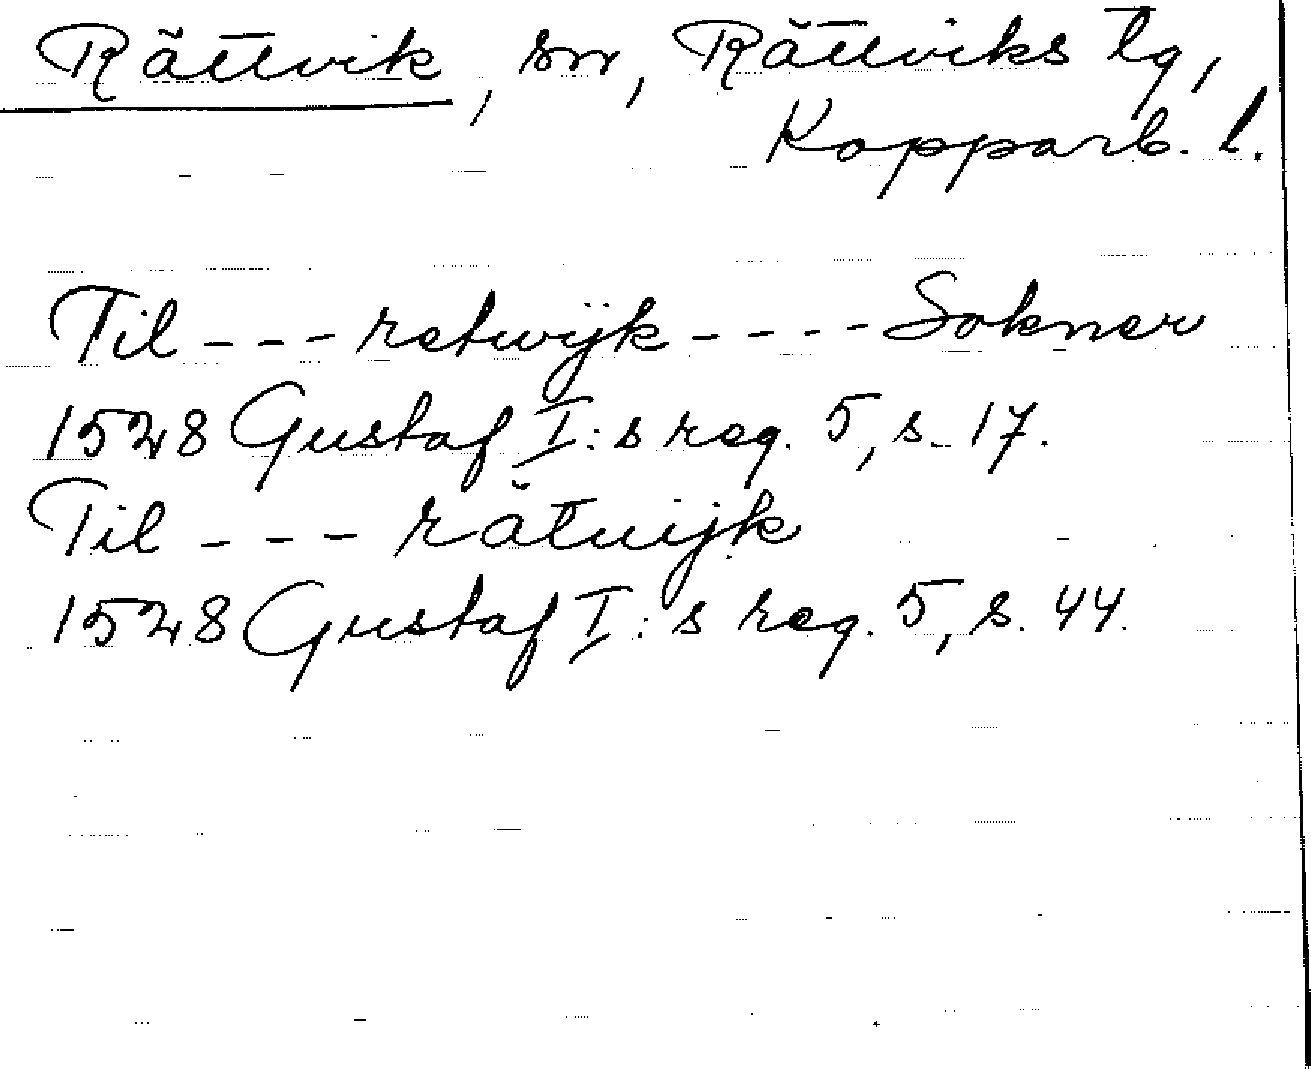 Rättvik, sn, Rättviks tg,
Kopparb. l.
Til - - - retwijk - - - - Sokner
1528 Gustaf I:s reg. 5, s. 17.
Til - - - rätuijk
1528 Gustaf I:s reg. 5, s. 44.